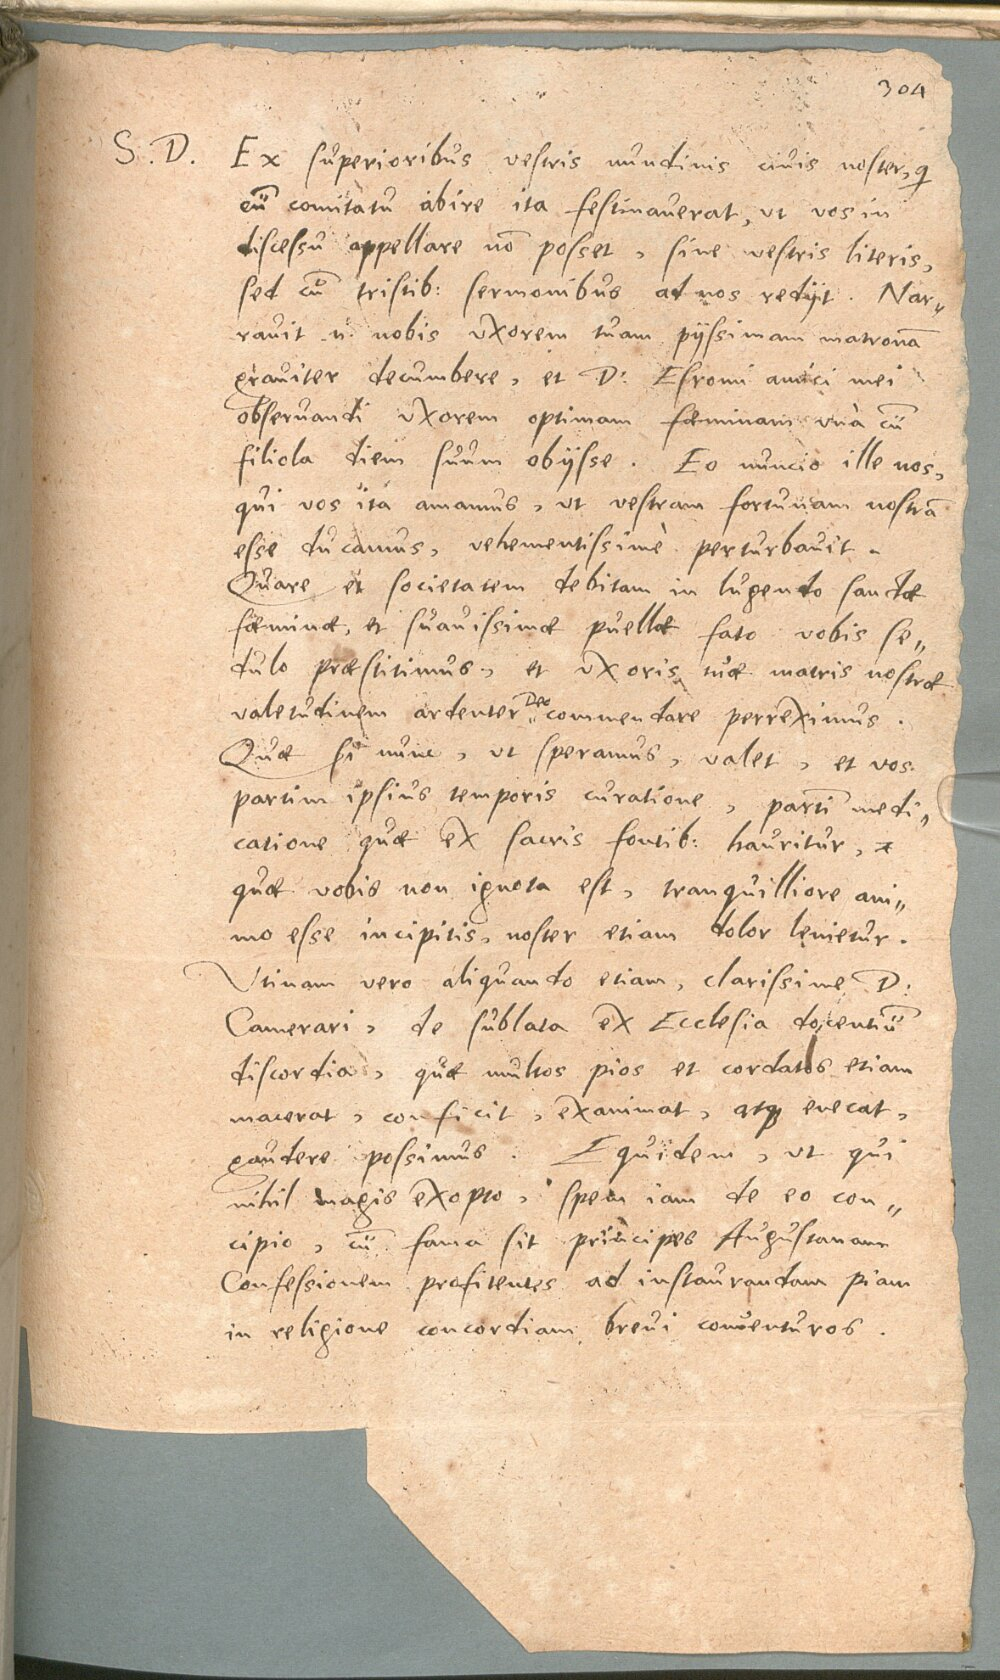 304
S. D. Ex superioribus vestris nundinis ciuis noster, q
cū comitatu abire ita festinauerat, vt vos in
discessu appellare nō posset, sine vestris literis,
sed cū tristib: sermonibus ad nos redijt. Nar„
rauit n. nobis vxorem tuam pijssimam matronā
grauiter decumbere, et D: Esromi amici mei
obseruandi vxorem optimam fæminam vnà cū
filiola diem suum obijsse. Eo nuncio ille nos,
qui vos ita amamus, vt vestram fortunam nostrā
esse ducamus, vehementissimè perturbauit.
Quare et societatem debitam in lugendo sanctæ
fæminæ, et suauissimæ puellæ fato vobis se„
dulo præstitimus, et vxoris tuæ matris nostræ
valetudinem ardenter Deo commendare perreximus.
Quæ si nunc, vt speramus, valet, et vos
partim ipsius temporis curatione, partī medi„
catione quæ ex sacris fontib: hauritur,
quæ vobis non ignota est, tranquilliore ani„
mo esse incipitis, noster etiam dolor lenietur.
Vtinam vero aliquando etiam, clarissime D:
Camerari, de sublata ex Ecclesia docentiū
discordia, quæ multos pios et cordatos etiam
macerat, conficit, exanimat, atq enecat,
gaudere possimus. Equidem, vt qui
nihil magis exopto, spem iam de eo con„
cipio, cū fama sit principes Augustanam
Confessionem profitentes ad instaurandam piam
in religione concordiam breui conuenturos.